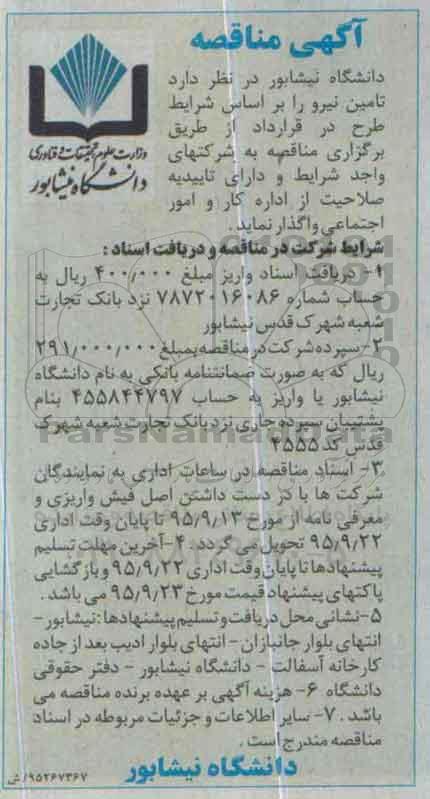 آگهی مناقصه
وزارت علوم، تحقیقات و فناوری
دانشگاه نیشابور
دانشگاه نیشابور در نظر دارد
تامین نیرو را بر اساس شرایط
طرح در قرارداد از طریق
برگزاری مناقصه به شرکتهای
واجد شرایط و دارای تاییدیه
صلاحیت از اداره کار و امور
اجتماعی واگذار نماید.
شرایط شرکت در مناقصه و دریافت اسناد:
۱- دریافت اسناد واریز مبلغ ۴۰۰/۰۰۰ ریال به
حساب شماره ۷۸۷۲۰۱۶۰۸۶ نزد بانک تجارت
شعبه شهرک قدس نیشابور
۲-سپرده شرکت در مناقصه بمبلغ ۲۹۱/۰۰۰/۰۰۰
ریال که به صورت ضمانتنامه بانکی به نام دانشگاه
نیشابور یا واریز به حساب ۴۵۵۸۴۴۷۹۷ بنام
پشتیبان سپرده جاری نزد بانک تجارت شعبه شهرک
قدس کد ۴۵۵۵
۳- اسناد مناقصه در ساعات اداری به نمایندگان
شرکت ها با در دست داشتن اصل فیش واریزی و
معرفی نامه از مورخ ۹۵/۹/۱۳ تا پایان وقت اداری
۹۵/۹/۲۲ تحویل می گردد. ۴-آخرین مهلت تسلیم
پیشنهادها تا پایان وقت اداری ۹۵/۹/۲۲ و بازگشایی
پاکتهای پیشنهاد قیمت مورخ ۹۵/۹/۲۳ می باشد.
۵-نشانی محل دریافت و تسلیم پیشنهادها: نیشابور-
انتهای بلوار جانبازان- انتهای بلوار ادیب بعد از جاده
کارخانه آسفالت - دانشگاه نیشابور - دفتر حقوقی
دانشگاه ۶- هزینه آگهی بر عهده برنده مناقصه می
باشد. ۷- سایر اطلاعات و جزئیات مربوطه در اسناد
مناقصه مندرج است.
دانشگاه نیشابور
۹۵۲۶۷۳۶۷/ش
ParsNamadData